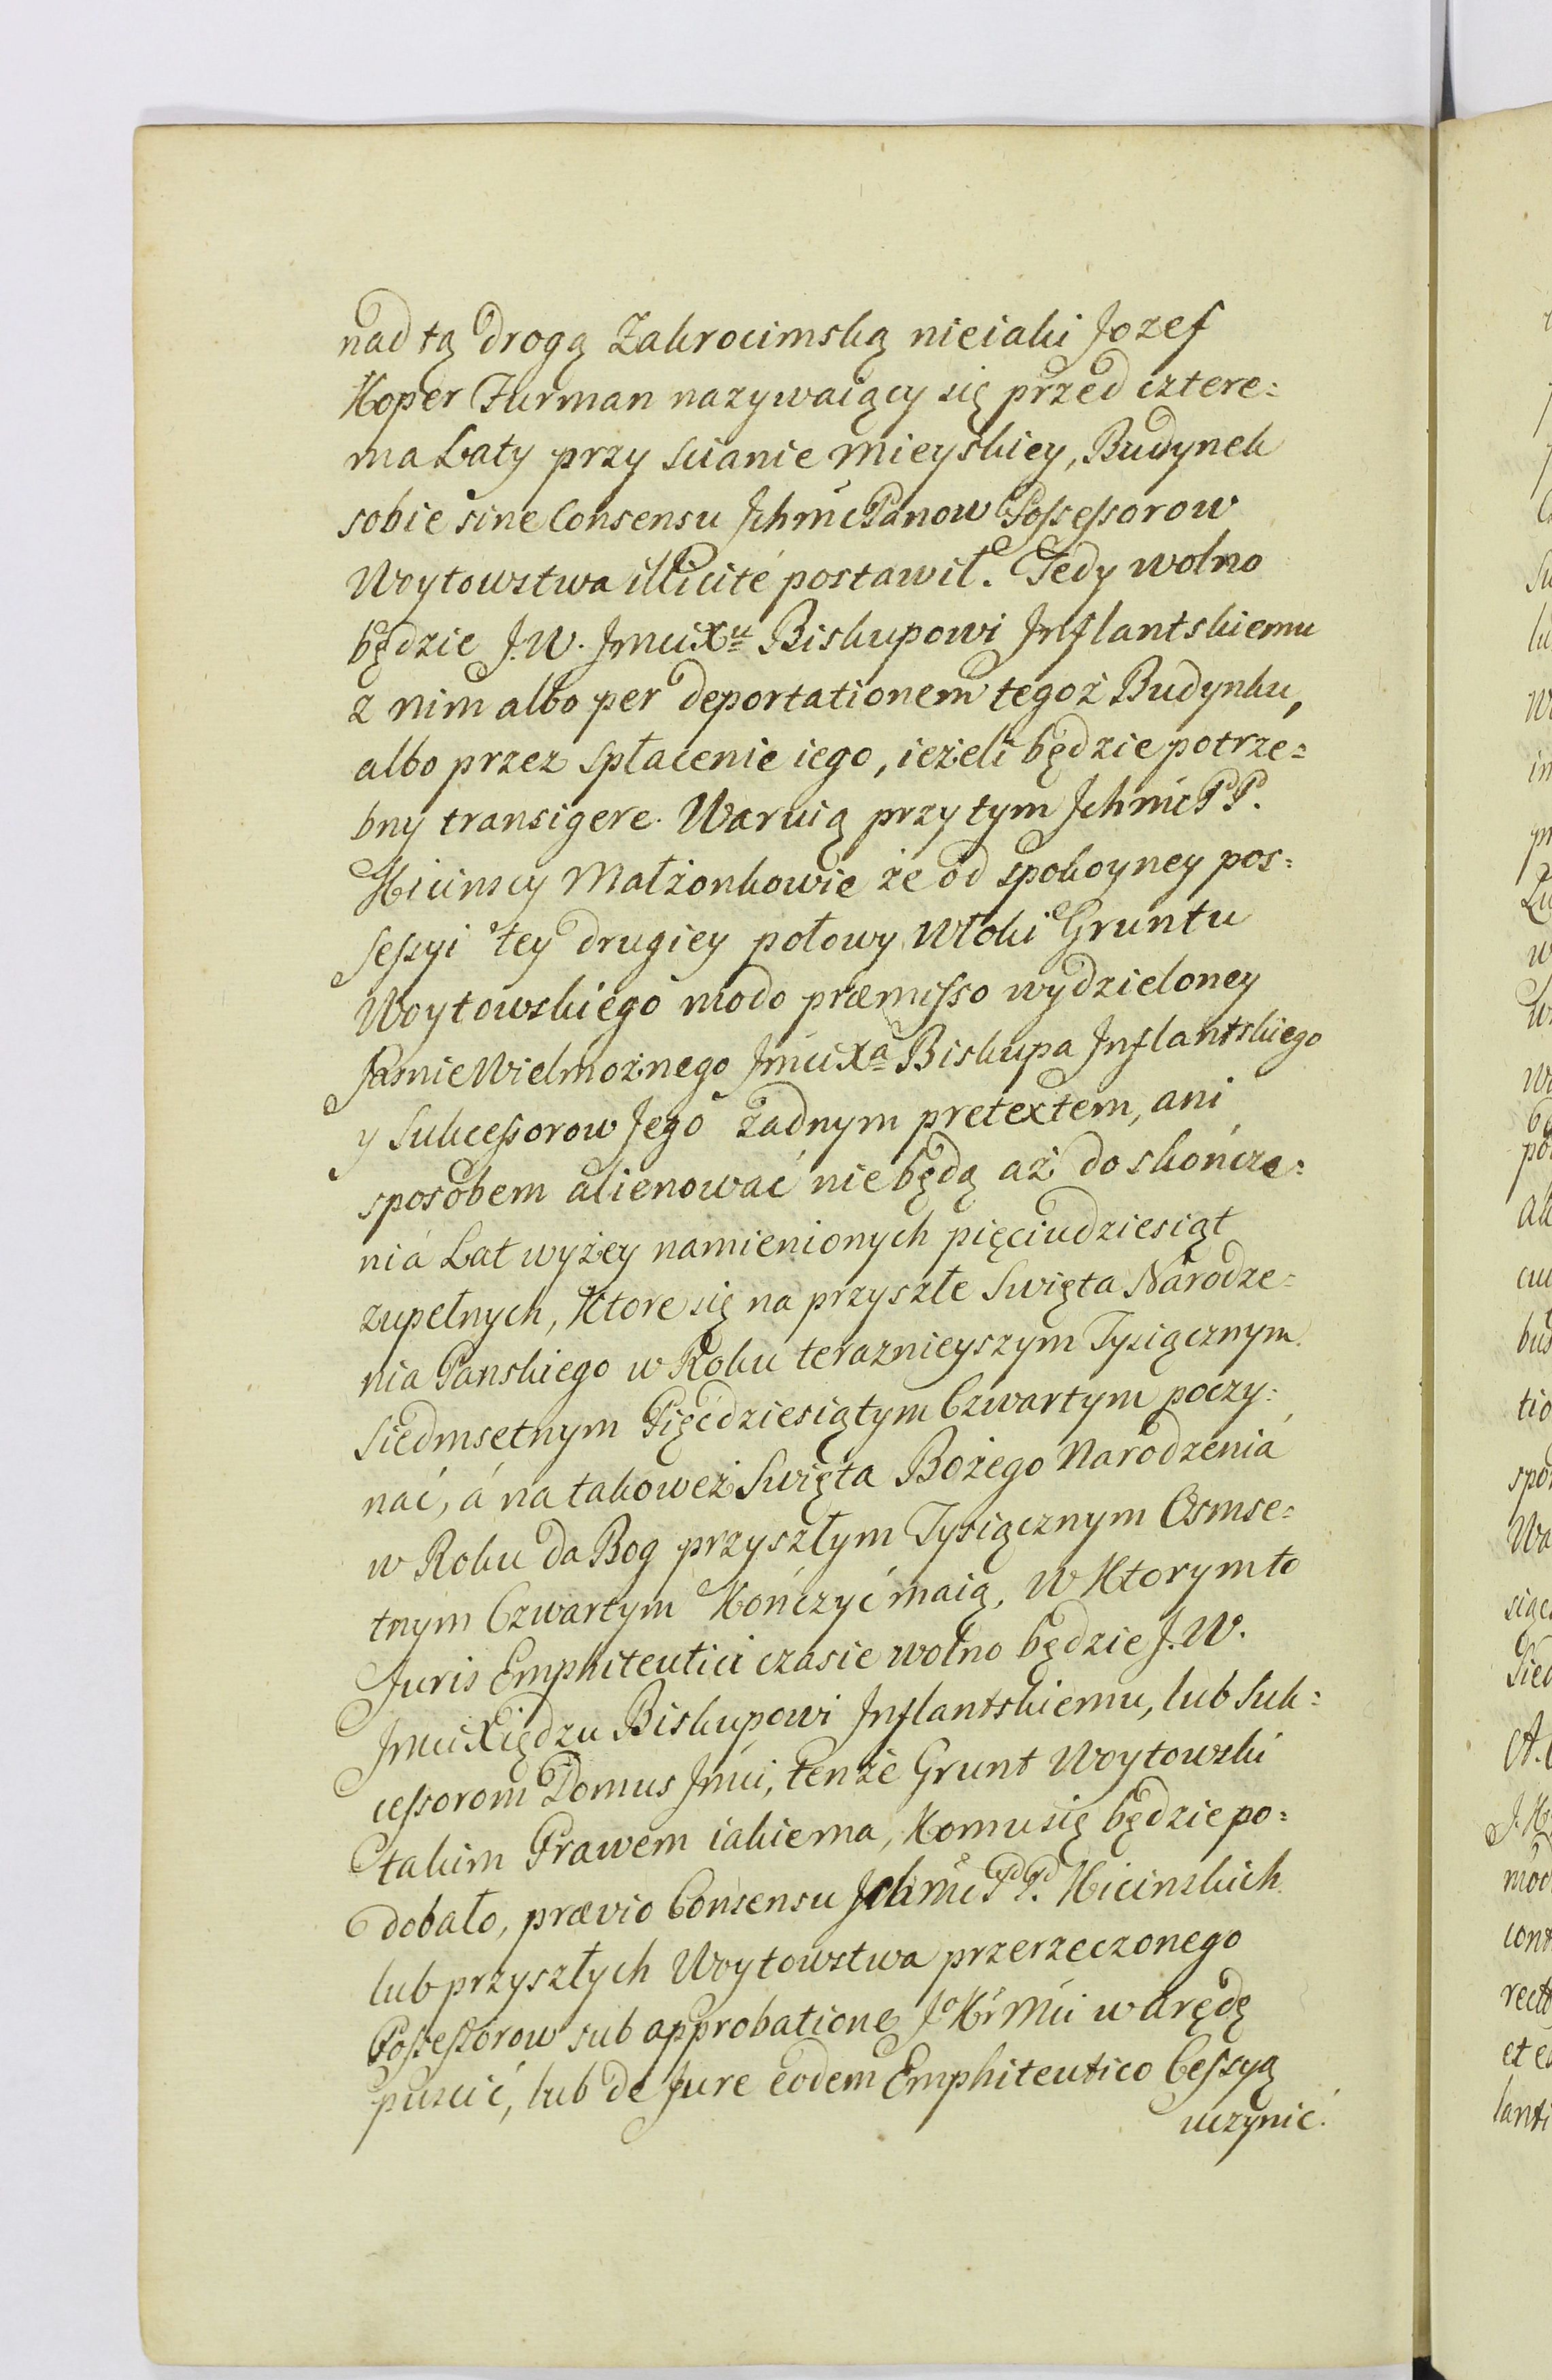 nad tą drogą Zakrocimską nieiaki Jozef
Koper Furman nazywaiący się przed cztere=
ma Laty przy scianie Mieyskiey, Budynek
sobie sine Consensu Ichmc Panow Possessorow
Woytowstwa illicité postawił. Tedy wolno
będzie J.W. Jmci Xu Biskupowi Inflantskiemu
z nim albo per deportationem tegoż Budynku,
albo przez spłacenie iego, ieżeli będzie potrze=
bny transigere. Waruią przytym Ichmc PP.
Kicinscy Małżonkowie że od spokoyney pos=
sessyi tey drugiey połowy Włoki Gruntu
Woytowskiego modo præmisso wydzieloney
Jasnie Wielmożnego Jmci Xa Biskupa Inflantskiego
y Sukcessorow Jego żadnym pretextem, ani
sposobem alienować nie będą aż do skończe=
nia Lat wyżey namienionych pięciudziesiąt
zupełnych, Ktore się na przyszłe Swięta Narodze=
nia Panskiego w Roku teraznieyszym Tysiącznym
Siedmsetnym Pięćdziesiątym Czwartym poczy=
nać, á na takoweż Swięta Bożego Narodzenia
w Roku da Bog przyszłym Tysiącznym Osmse=
tnym Czwartym Kończyć maią. W Ktorym to
Juris Emphiteutici czasie wolno będzie J.W.
Jmci Xiędzu Biskupowi Inflantskiemu, lub Suk=
cessorom Domus Jmci, tenże Grunt Woytowski
takim Prawem iakie ma, Komu się będzie po=
dobało, prævio Consensu Ichmc PP. Kicinskich
lub przyszłych Woytowstwa przerzeczonego
Possessorow sub approbatione Jo Kr Mci w arędę
puscić, lub de Jure eodem Emphiteutico Cessyą
uczynić.